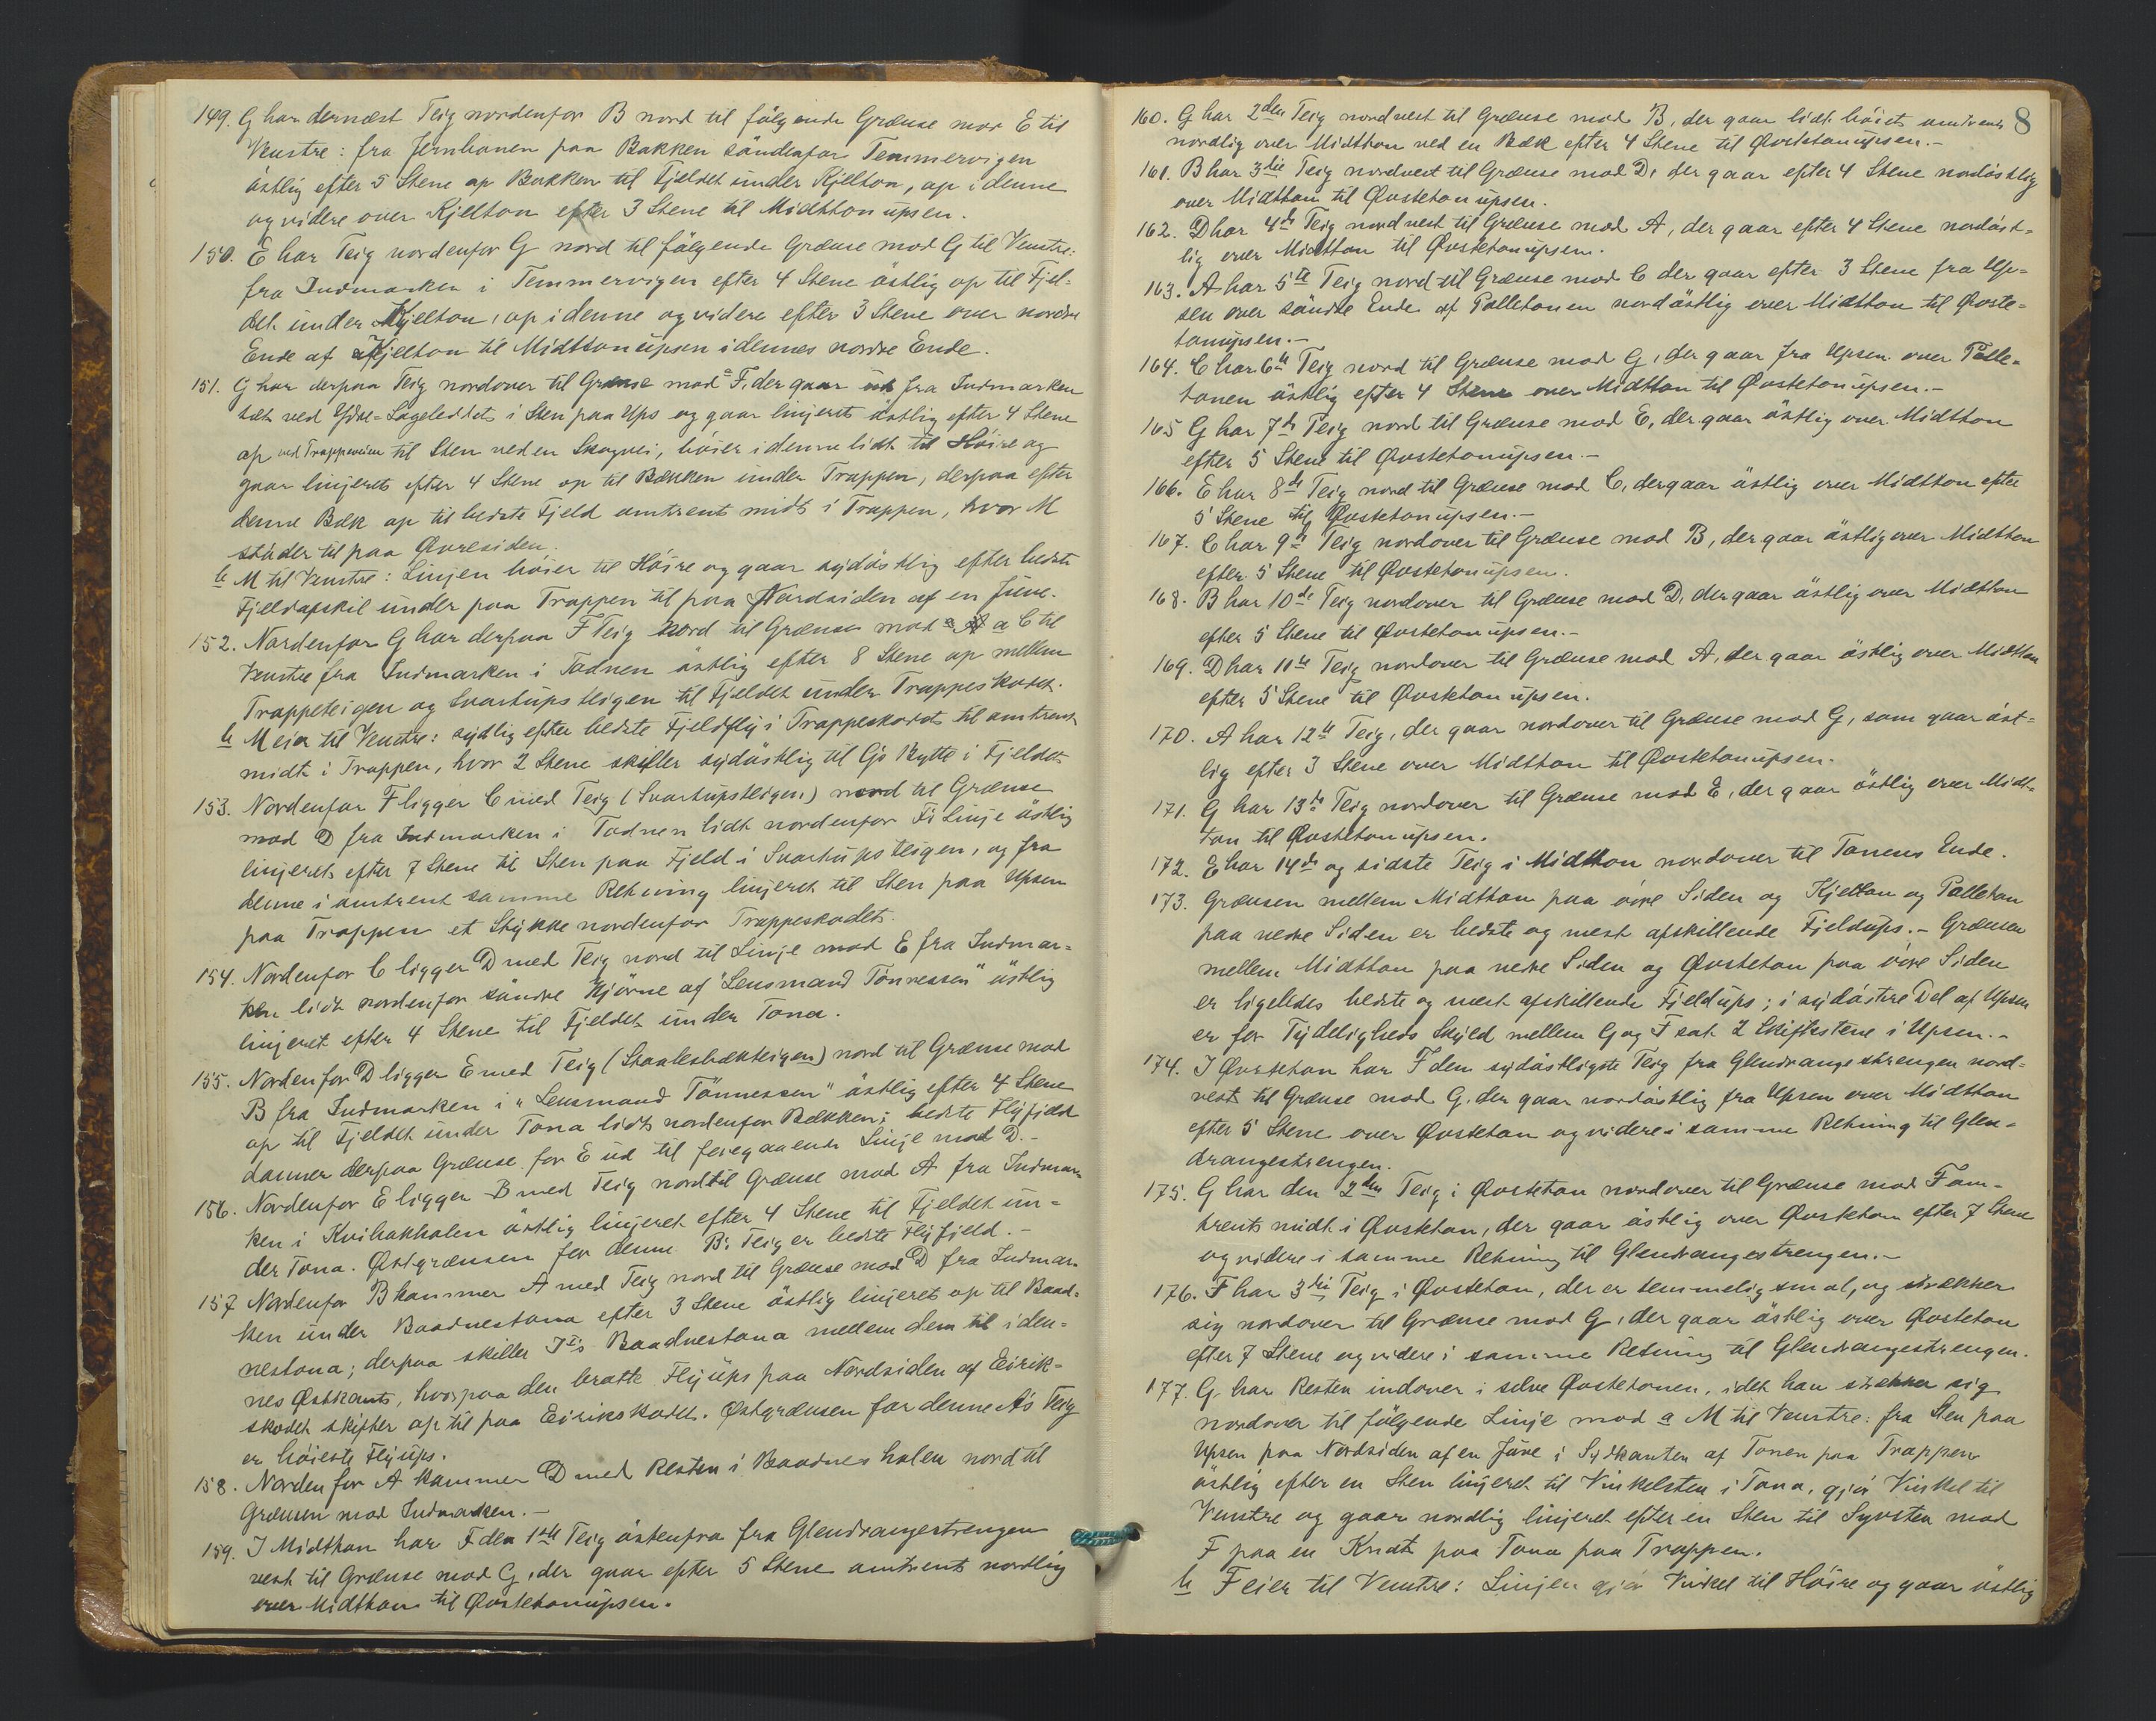 149. G har dernæst Teig nordenfor B nord til følgende Grænse mod E til
Venstre: fra Jernhanen paa Bakken søndenfor Temmervigen
østlig efter 5 Stene op Bakken til Fjeldet under Kjellton, op i denne
og videre over Kjellton efter 3 Stene til Midttonupsen.
150. E har Teig nordenfor G nord til følgende Grænse mod G til Venstre:
fra Indmarken i Temmervigen efter 4 Stene østlig op til Fjel-
det under Kjellton, op i denne og videre efter 3 Stene over nordre
Ende af Kjellton til Midttonupsen i dennes nordre Ende.
151. G har derpaa Teig nordover til Grænse mod a F, der gaar ud fra Indmarken
tæt ved Ydre-Lægeleddet i Sten paa Ups og gaar linjeret østlig efter 4 Stene
op ved Trappeveien til Sten ved en Skogvei, bøier i denne lidt til Høire og
gaar linjeret efter 4 Stene op til Bækken under Trappen, derpaa efter
denne Bæk op til bedste Fjeld omtrent midt i Trappen, hvor M
støder til paa Øvresiden.
b M til Venstre: Linjen bøier til Høire og gaar sydøstlig efter bedste
Fjeldafskil under paa Trappen til paa Nordsiden af en Juve.
152. Nordenfor G har derpaa F Teig nord til Grænse mod a C til
Venstre fra Indmarken i Tadnen østlig efter 8 Stene op mellem
Trappeteigen og Svartupsteigen til Fjeldet under Trappeskodet.
b M eier til Venstre: sydlig efter bedste Fjeldfly i Trappeskodet til omtrent
midt i Trappen, hvor 2 Stene skiller sydøstlig til G's Bytte i Fjeldet
153. Nordenfor F ligger C med Teig (Svartupsteigen) nord til Grænse
mod D fra Indmarken i Tadnen lidt nordenfor F's Linje østlig
linjeret efter 7 Stene til Sten paa Fjeld i Svartupsteigen, og fra
denne i omtrent samme Retning linjeret til Sten paa Upsen
paa Trappen et Stykke nordenfor Trappeskodet.
154. Nordenfor C ligger D med Teig nord til Linje mod E fra Indmar-
ken lidt nordenfor søndre Hjørne af "Lensmand Tønnessen" østlig
linjeret efter 4 Stene til Fjeldet under Tona.
155. Nordenfor D ligger E med Teig (Staalesbækteigen) nord til Grænse mod
B fra Indmarken i "Lensmand Tønnessen" østlig efter 4 Stene
op til Fjeldet under Tona lidt nordenfor Bækken; bedste Flyfjeld
danner derpaa Grænse for E ud til foregaaende Linje mod D.-
156. Nordenfor E ligger B med Teig nord til Grænse mod A fra Indmar-
ken i Kvibakhalen østlig linjeret efter 4 Stene til Fjeldet un-
der Tona. Østgrænsen for denne B's Teig er bedste Flyfjeld.-
157 Nordenfor B kommer A med Teig nord til Grænse mod D fra Indmar-
ken under Baadnestona efter 3 Stene østlig linjeret op til Baad-
nestona; derpaa skiller Baadnestona mellem dem til i den-
nes Østkant, hvorpaa den bratte Flyups paa Nordsiden af Eirik-
skodet skifter op til paa Eirikskodet. Østgrænsen for denne A's Teig
er høieste Flyups.
158. Norden for A kommer D med Resten i Baadneshalen nord til
Grænsen mod Indmarken.-
159. I Midtton har F den 1ste Teig østenfra fra Glendrangestrengen
vest til Grænse mod G, der gaar efter 5 Stene omtrent nordlig
over Midtton til Øvstetonupsen.
8
160. G har 2den Teig nordvest til Grænse mod B, der gaar lidt bøiet omtrent
nordlig over Midtton ved en Bæk efter 4 Stene til Øvstetonupsen.-
161. B har 3die Teig nordvest til Grænse mod D, der gaar efter 4 Stene nordøstlig
over Midtton til Øvstetonupsen.
162. D har 4de Teig nordvest til Grænse mod A, der gaar efter 4 Stene nordøst-
lig over Midtton til Øvstetonupsen.
163. A har 5te Teig nord til Grænse mod C der gaar efter 3 Stene fra Up-
sen over søndre Ende af Palletonen nordøstlig over Midtton til Øvste-
tonupsen.-
164. C har 6te Teig nord til Grænse mod G, der gaar fra Upsen over Palle-
tonen østlig efter 4 Stene over Midtton til Øvstetonupsen.-
165 G har 7de Teig nord til Grænse mod E, der gaar østlig over Midtton
efter 5 Stene til Øvstetonupsen.-
166. E har 8de Teig nord til Grænse mod C, der gaar østlig over Midtton efter
5 Stene til Øvstetonupsen.-
167. C har 9de Teig nordover til Grænse mod B, der gaar østlig over Midtton
efter 5 Stene til Øvstetonupsen.
168. B har 10de Teig nordover til Grænse mod D, der gaar østlig over Midtton
efter 5 Stene til Øvstetonupsen.-
169. D har 11te Teig nordover til Grænse mod A, der gaar østlig over Midtton
efter 5 Stene til Øvstetonupsen.
170. A har 12te Teig, der gaar nordover til Grænse mod G, som gaar øst-
lig efter 3 Stene over Midtton til Øvstetonupsen.
171. G har 13de Teig nordover til Grænse mod E, der gaar østlig over Midt-
ton til Øvstetonupsen.
172. E har 14de og sidste Teig i Midtton nordover til Tonens Ende.
173. Grænsen mellem Midtton paa øvre Siden og Kjellton og Palleton
paa nedre Siden er bedste og mest afskillende Fjeldups.- Grænsen
mellem Midtton paa nedre Siden og Øvsteton paa øvre Siden
er ligeledes bedste og mest afskillende Fjeldups; i sydøstre Del af Upsen
er for Tydeligheds Skyld mellem G og F sat 2 Skiftestene i Upsen.-
174. I Øvsteton har F den sydøstligste Teig fra Glendrangestrengen nord-
vest til Grænse mod G, der gaar nordøstlig fra Upsen over Midtton
efter 5 Stene over Øvsteton og videre i samme Retning til Glen-
drangestrengen.
175. G har den 2den Teig i Øvsteton nordover til Grænse mod F om-
trent midt i Øvsteton, der gaar østlig over Øvsteton efter 7 Stene
og videre i samme Retning til Glendrangestrengen.-
176. F har 3die Teig i Øvsteton, der er temmelig smal, og strækker
sig nordover til Grænse mod G, der gaar østlig over Øvsteton
efter 7 Stene og videre i samme Retning til Glendrangestrengen.
177. G. har Resten indover i selve Øvstetonen, idet han strekker sig
nordover til følgende Linje mod a M til Venstre: fra Sten paa
Upsen paa Nordsiden af en Juve i Sydkanten af Tonen paa Trappen
østlig efter en Sten linjeret til Vinkelsten i Tona, gjør Vinkel til
Venstre og gaar nordlig linjeret efter en Sten til Syvsten mod
F paa en Knat paa Tona paa Trappen.
b F eier til Venstre: Linjen gjør Vinkel til Høire og gaar østlig